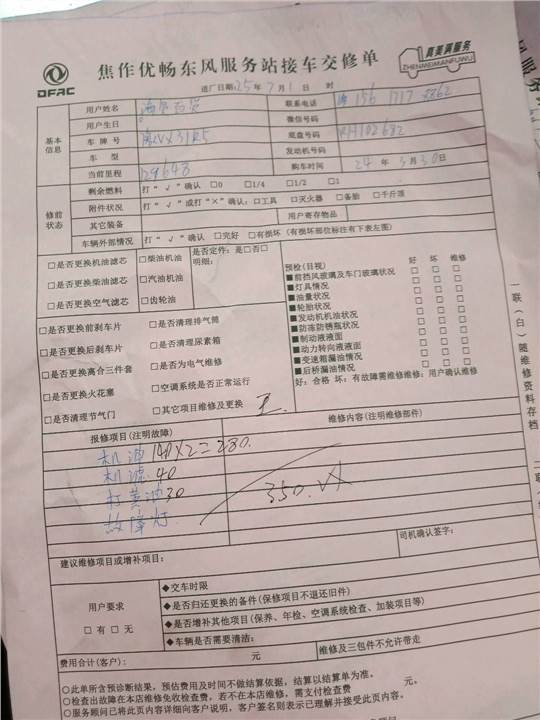 DFAC
焦作优畅东风服务站接车交修单
真美满服务
ZHENMEIMANFUWU
进厂日期:25年7月1日 时
基本信息
用户姓名
联系电话 156 1717
用户生日
微信号码
车牌号
底盘号码 RH102682
车型
发动机号码
当前里程 129648
购车时间 24年3月30日
修前状态
剩余燃料 打“√”确认 □0 □1/4 □1/2 □1
附件状况 打“√”或打“×”确认:□工具 □灭火器 □备胎 □千斤顶
其它装备 用户寄存物品
车辆外部情况 打“√”确认 □完好 □有损坏(有损坏部位标注有下表左图)
□是否更换机油滤芯 □柴油机油 是否定件:是□否□
明细:
□是否更换柴油滤芯 □汽油机油
□是否更换空气滤芯 □齿轮油
预检(目视) 好 坏 维修
■前挡风玻璃及车门玻璃状况 □ □ □
■灯具情况 □ □ □
■油量状况 □ □ □
■轮胎状况 □ □ □
■发动机机油状况 □ □ □
■防冻防锈瓶状况 □ □ □
■制动液液面 □ □ □
■动力转向液液面 □ □ □
■变速箱漏油情况 □ □ □
■后桥漏油情况 □ □ □
好:合格 坏:有故障需维修维修:用户确认维修
□是否更换前刹车片 □是否清理排气筒
□是否更换后刹车片 □是否清理尿素箱
□是否更换离合三件套 □是否为电气维修
□是否更换火花塞 □空调系统是否正常运行
□是否清理节气门 □其它项目维修及更换
报修项目(注明故障) 维修内容(注明维修部件)
机油 140×2=280.
机滤 40
打黄油30
故障灯
350.
司机确认签字:
建议维修项目或增补项目:
用户要求
□有 □无
◆交车时限
◆是否归还更换的备件(保修项目不退还旧件)
◆是否增补其他项目(保养、年检、空调系统检查、加装项目等)
◆车辆是否需要清洁:
费用合计(客户): 元 维修及三包件不允许带走
○此单所含预诊断结果,预估费用及时间不做结算依据,结算以结算单为准。
○检查出故障在本店维修免收检查费,若不在本店维修,需支付检查费 元。
○服务顾问已将此页内容详细向客户说明,客户签名则表示已理解并接受此页内容。
一联(白)随维修资料存档